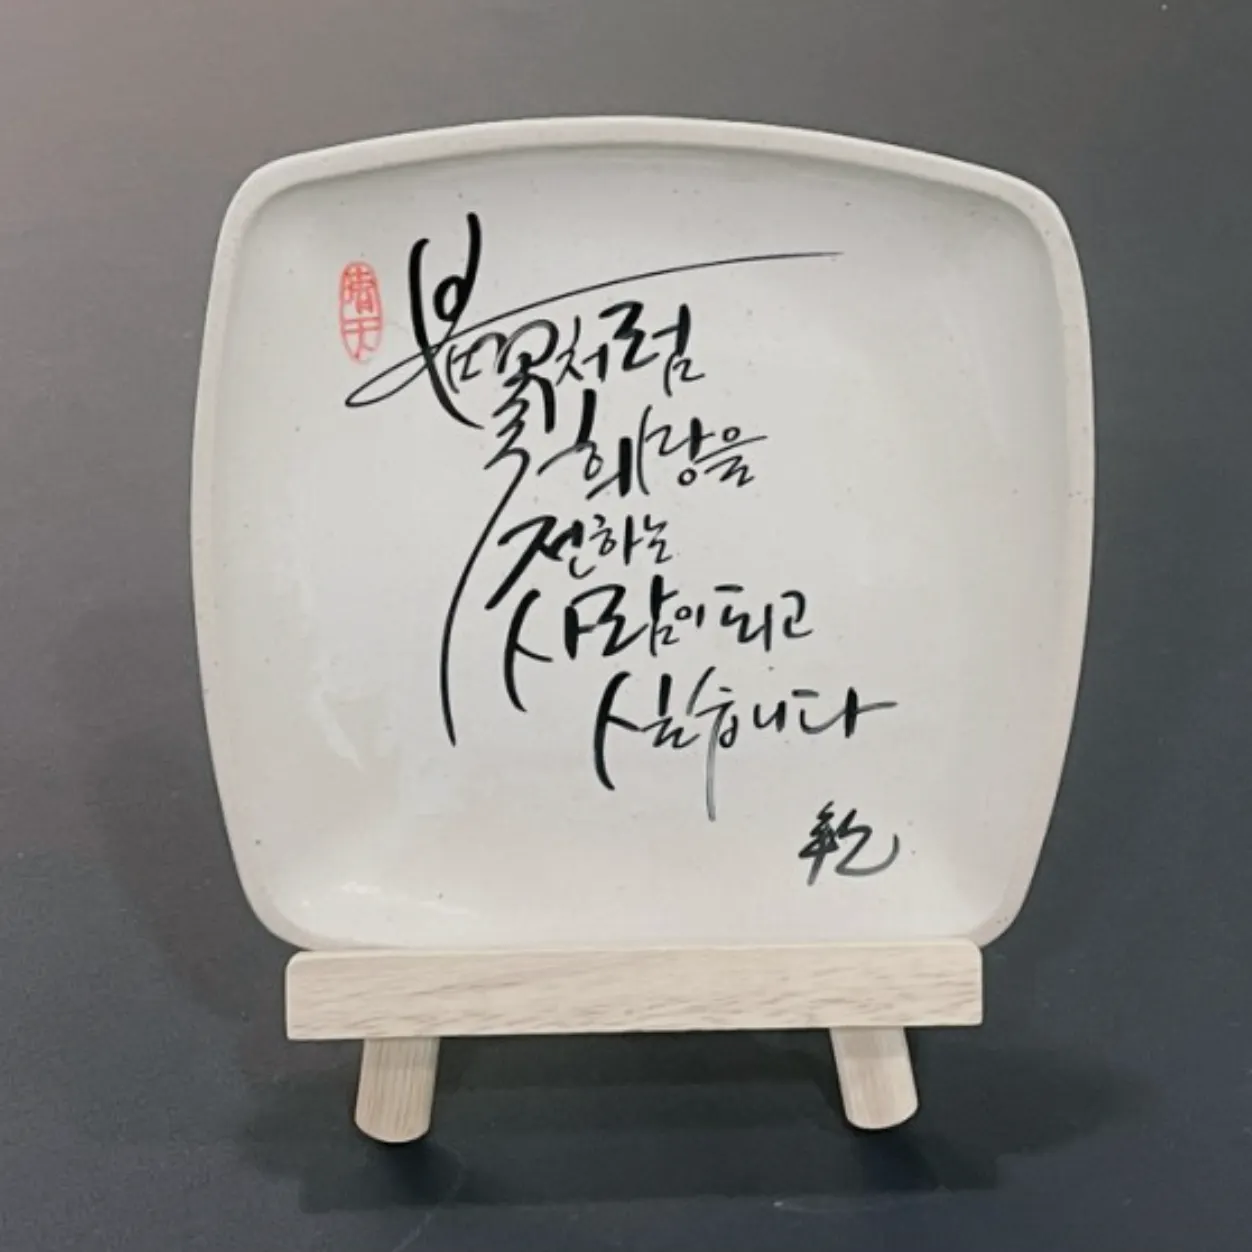 봄꽃처럼
희망을
전하는
사람이 되고
싶습니다
乾